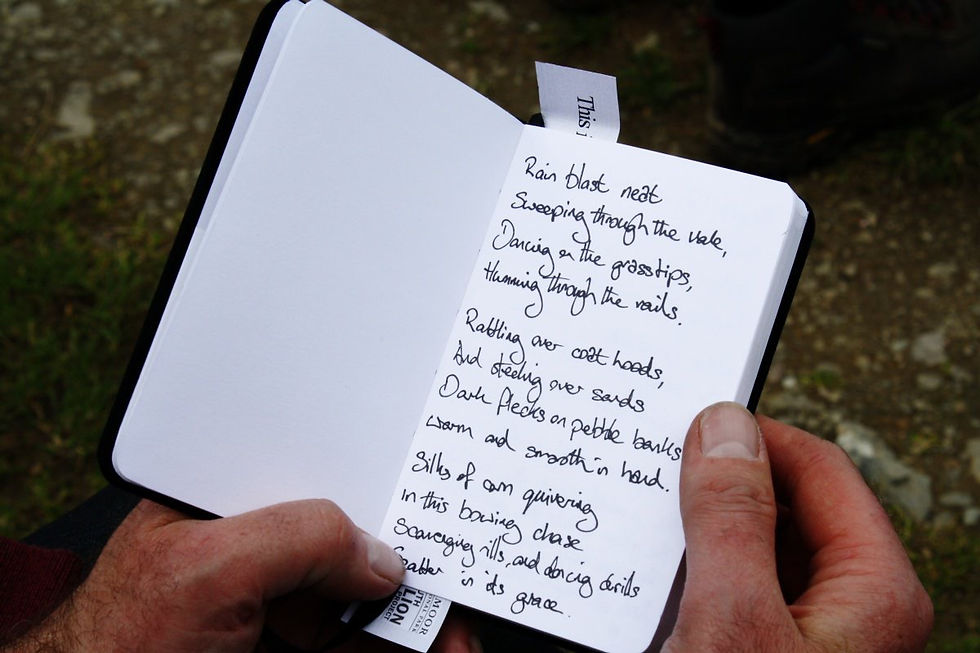 This i
Rain blast neat
Sweeping through the vale,
Dancing on the grasstips,
Humming through the rails.
Rattling over coat hoods,
And steeling over sands
Dark flecks on pebble banks
Warm and smooth in hand.
Silks of corn quivering
in this bowing chase
Scavenging rills, and dancing drills
Scatter in its grace.
MOOR
ONAL PARK
UTH
LION
PROJECT